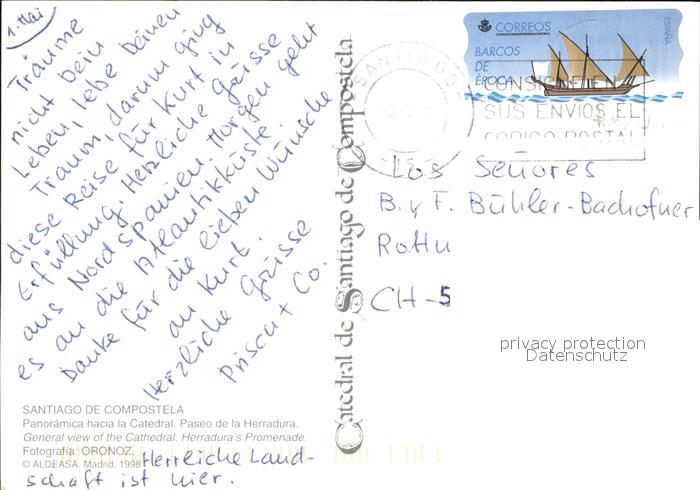 1. Mai
Träume
nicht dein
Leben, lebe Deinen
Traum, darum ging
diese Reise für Kurt in
Erfüllung. Herzliche Grüsse
aus Nordspanien. Morgen geht
es an die Atlantikküste.
Danke für die lieben Wünsche
an Kurt.
Herzliche Grüsse
Prisca + Co.
SANTIAGO DE COMPOSTELA
Panorámica hacia la Catedral. Paseo de la Herradura.
General view of the Cathedral. Herradura's Promenade.
Fotografía: ORONOZ.
© ALDEASA. Madrid, 1998
Herrliche Land-
schaft ist hier.
Catedral de Santiago de Compostela
CORREOS
ESPAÑA
BARCOS
DE
ÉPOCA
SANTIAGO
CONSIGNE EN
SUS ENVIOS EL
CODIGO POSTAL
Los Señores
B. y F. Bühler-Bachofner
CH-5
privacy protection
Datenschutz